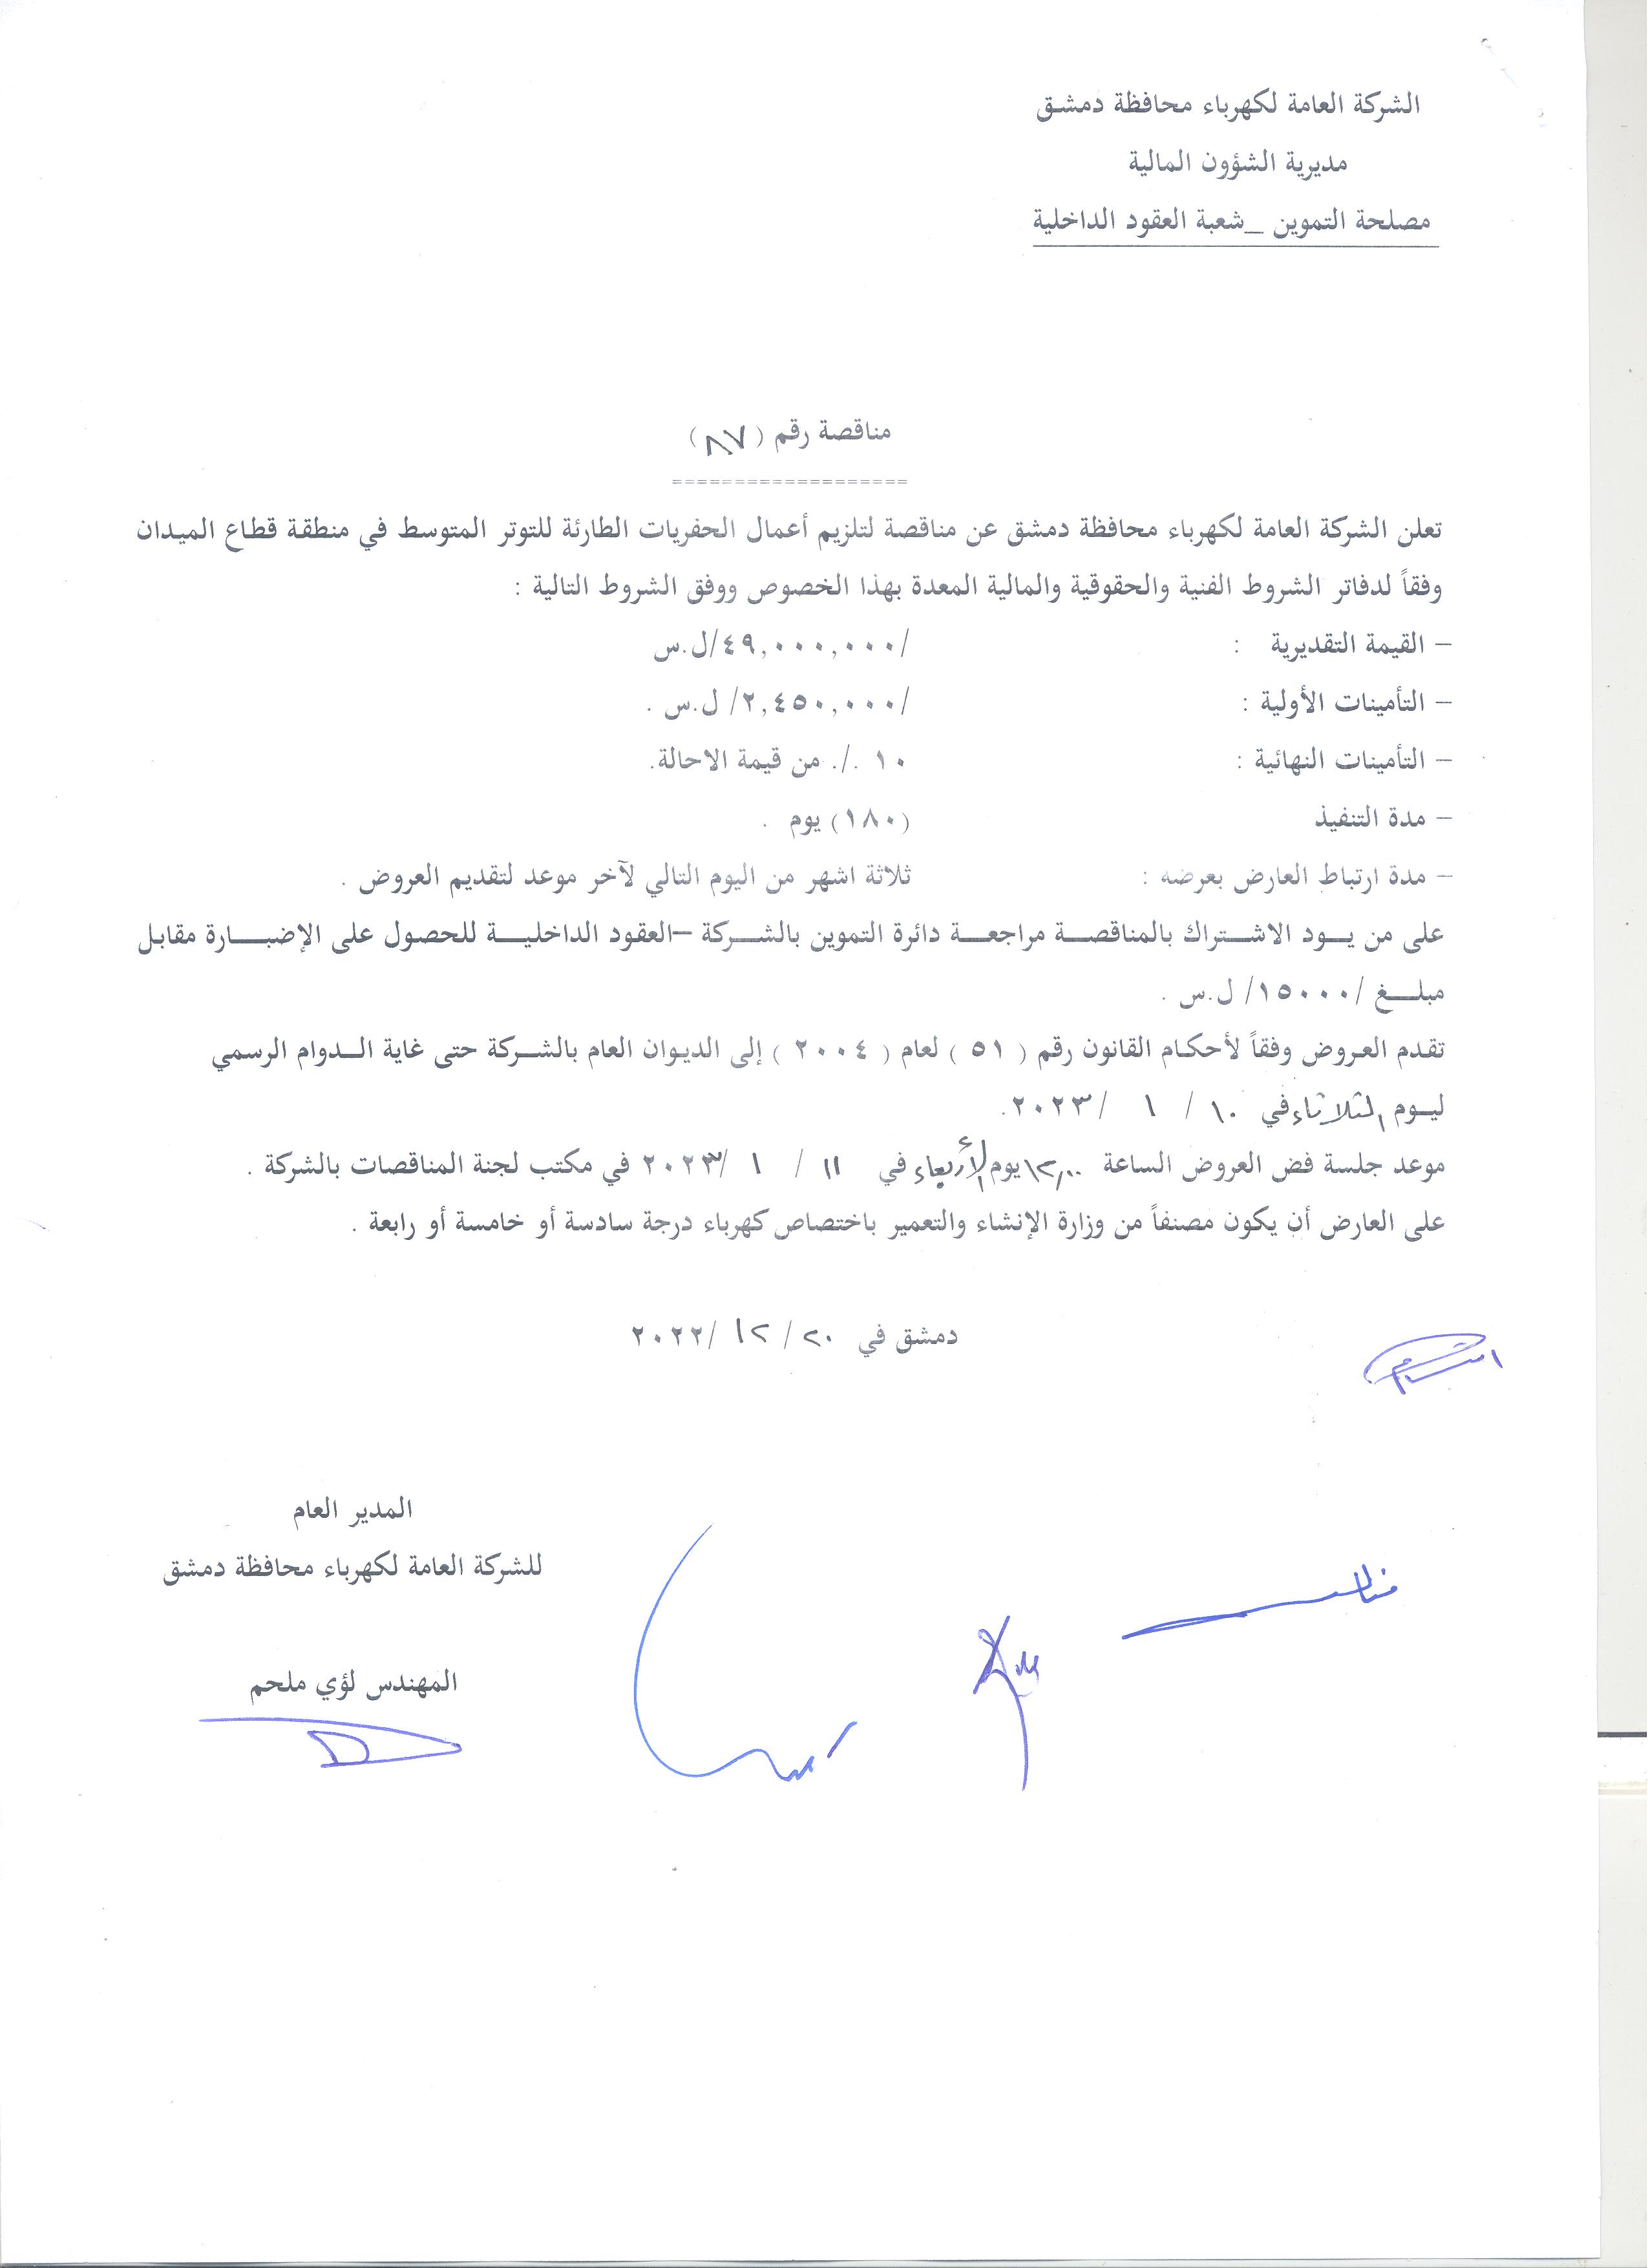 الشركة العامة لكهرباء محافظة دمشق
مديرية الشؤون المالية
مصلحة التموين _شعبة العقود الداخلية
مناقصة رقم (٨٧)
===================
تعلن الشركة العامة لكهرباء محافظة دمشق عن مناقصة لتلزيم أعمال الحفريات الطارئة للتوتر المتوسط في منطقة قطاع الميدان
وفقاً لدفاتر الشروط الفنية والحقوقية والمالية المعدة بهذا الخصوص ووفق الشروط التالية :
– القيمة التقديرية : /٤٩,٠٠٠,٠٠٠/ل.س
– التأمينات الأولية : /٢,٤٥٠,٠٠٠/ ل.س .
– التأمينات النهائية : ١٠ ./. من قيمة الاحالة.
– مدة التنفيذ (١٨٠) يوم .
– مدة ارتباط العارض بعرضه : ثلاثة اشهر من اليوم التالي لآخر موعد لتقديم العروض .
على من يـود الاشـتراك بالمناقصـة مراجعـة دائرة التموين بالشـركة –العقود الداخليـة للحصول على الإضبـارة مقابل
مبلـغ /١٥٠٠٠/ ل.س .
تقدم العروض وفقاً لأحكام القانون رقم ( ٥١ ) لعام ( ٢٠٠٤ ) إلى الديوان العام بالشـركة حتى غاية الـدوام الرسمي
ليـوم الثلاثاء في ١٠ / ١ / ٢٠٢٣.
موعد جلسة فض العروض الساعة ١٢,٠٠ يوم الأربعاء في ١١ / ١ / ٢٠٢٣ في مكتب لجنة المناقصات بالشركة .
على العارض أن يكون مصنفاً من وزارة الإنشاء والتعمير باختصاص كهرباء درجة سادسة أو خامسة أو رابعة .
دمشق في ٢٠ / ١٢ / ٢٠٢٢
المدير العام
للشركة العامة لكهرباء محافظة دمشق
المهندس لؤي ملحم